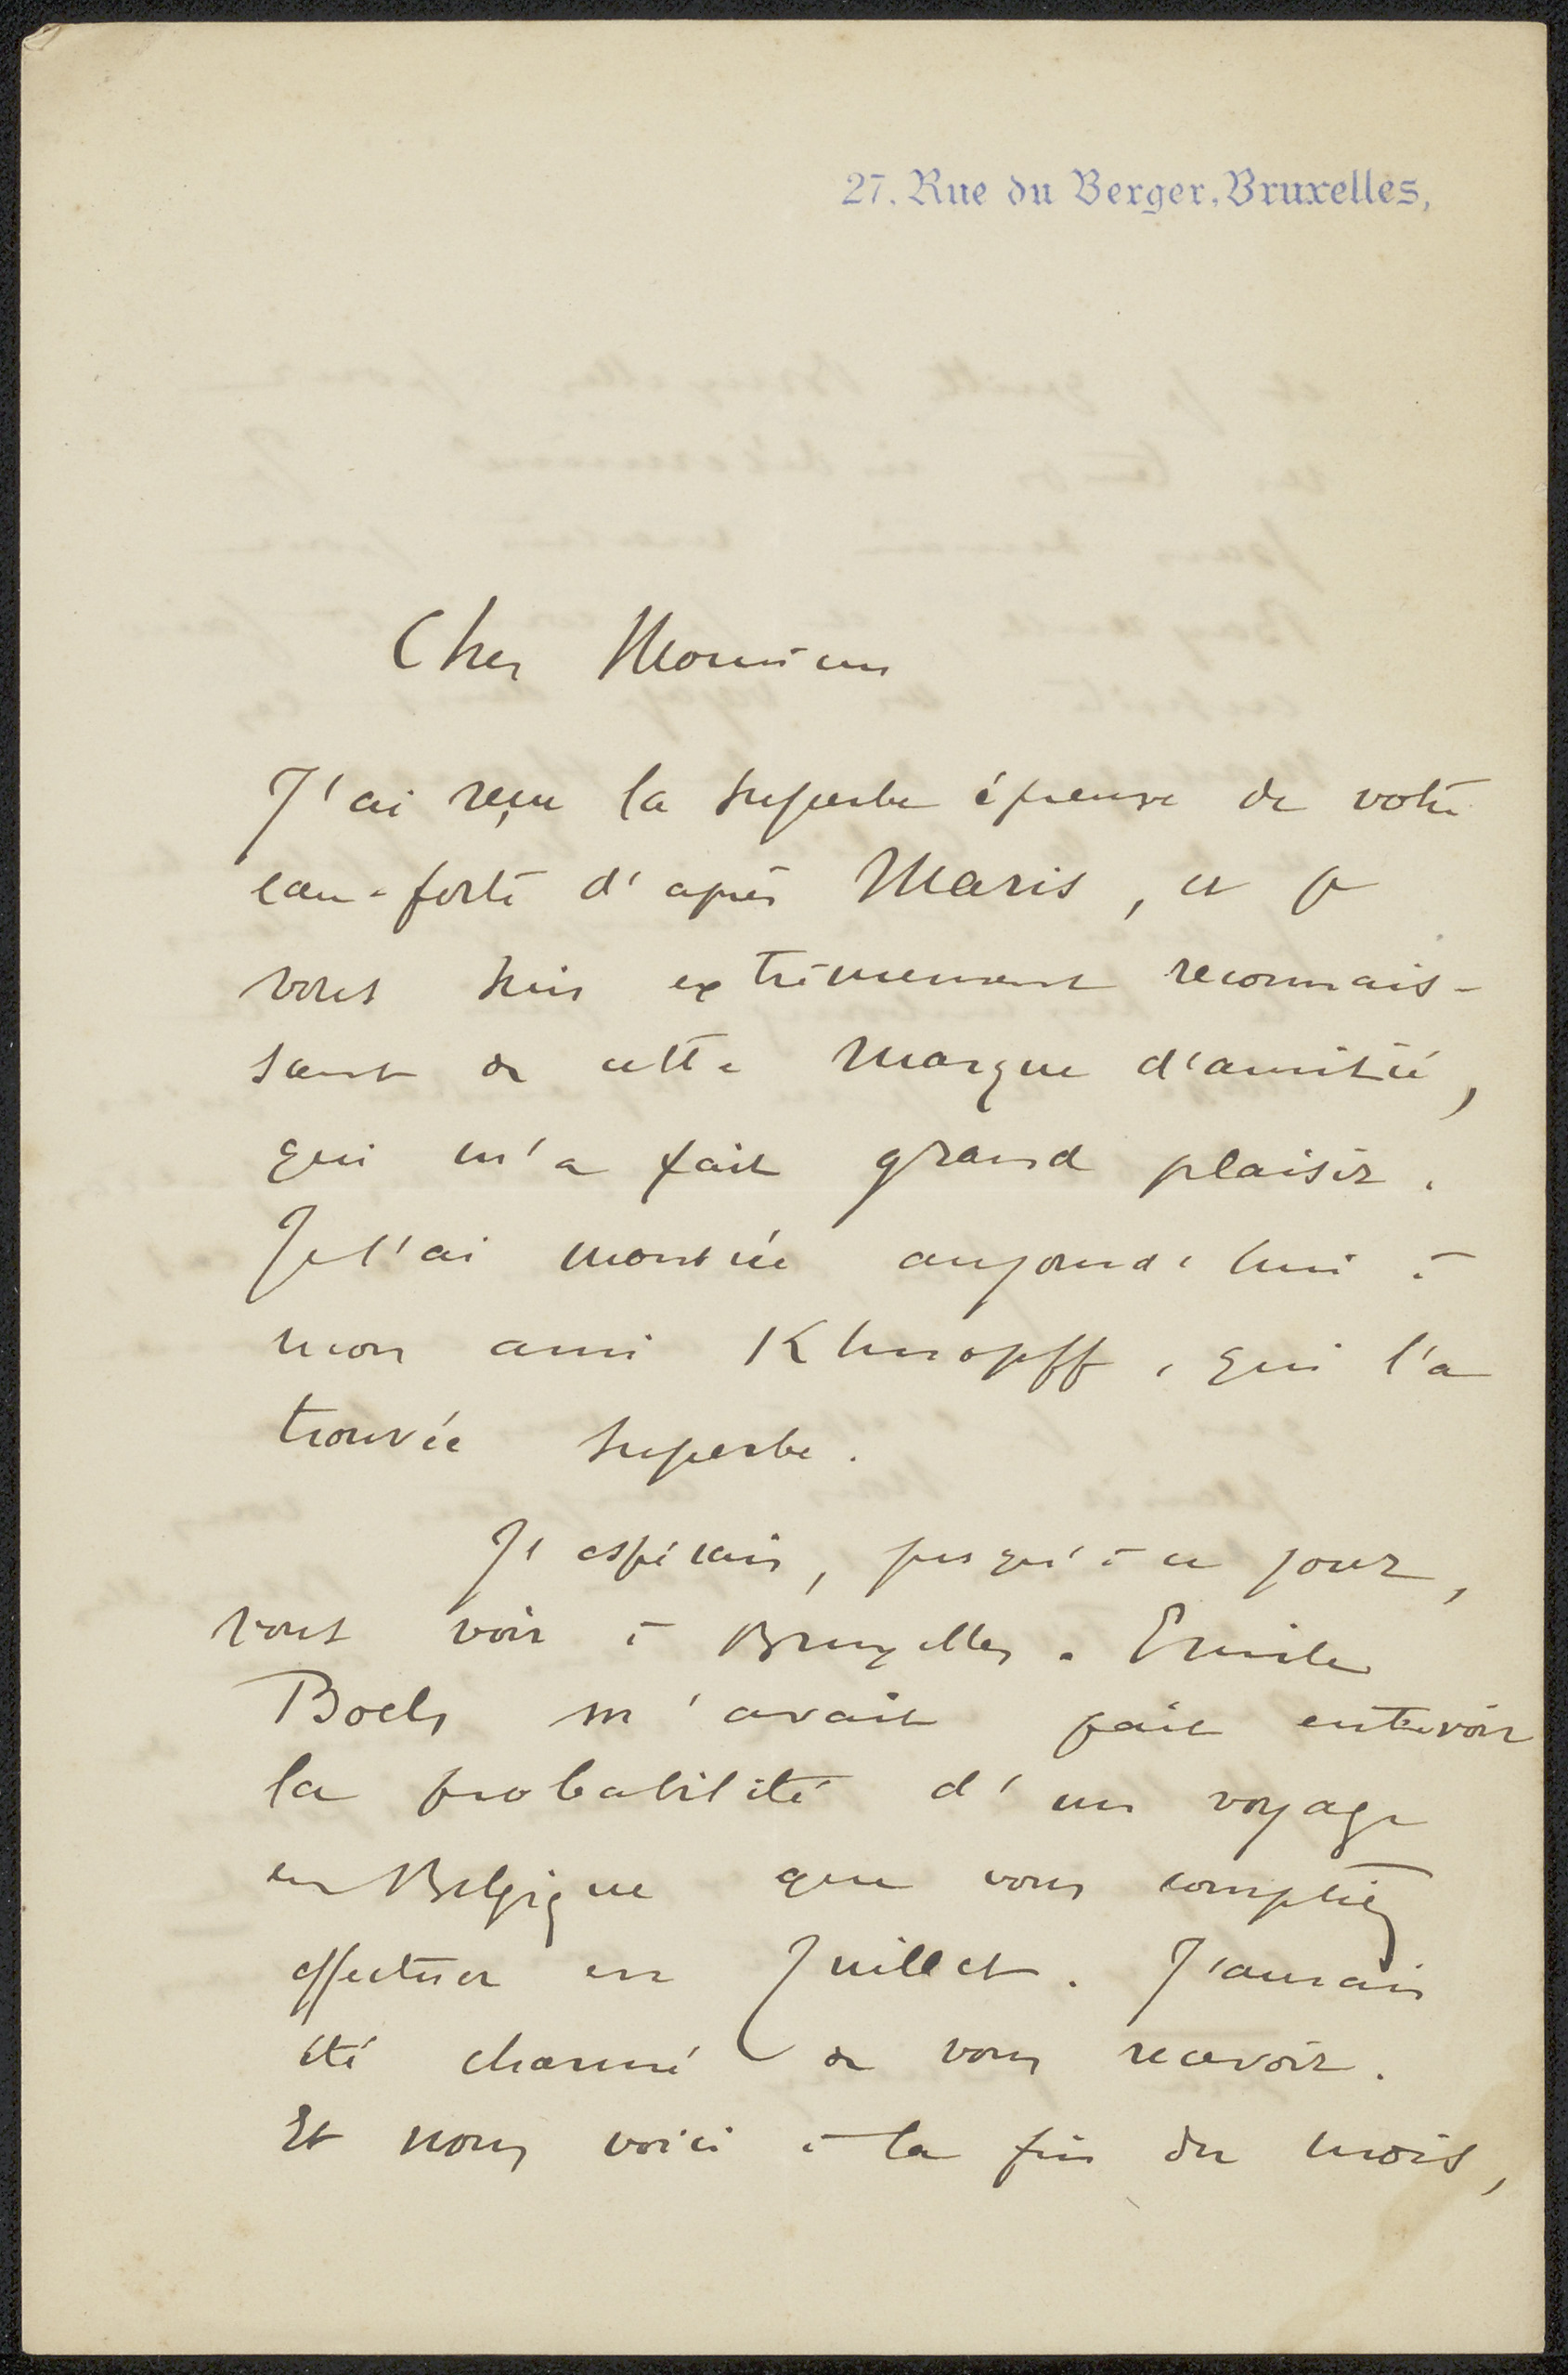 27. Rue du Berger, Bruxelles,
Cher Monsieur
J'ai reçu la superbe épreuve de votre
eau-forte d'après Maris, et je
vous suis extrêmement reconnais-
sant de cette marque d'amitié,
qui m'a fait grand plaisir.
Je l'ai montrée aujourd'hui à
mon ami Khnopff, qui l'a
trouvée superbe.
J'espérais, jusqu'à ce jour,
vous voir à Bruxelles. Emile
Boels m'avait fait entrevoir
la probabilité d'un voyage
en Belgique que vous comptiez
effectuer en Juillet. J'aurais
été charmé de vous recevoir.
Et nous voici à la fin du mois,